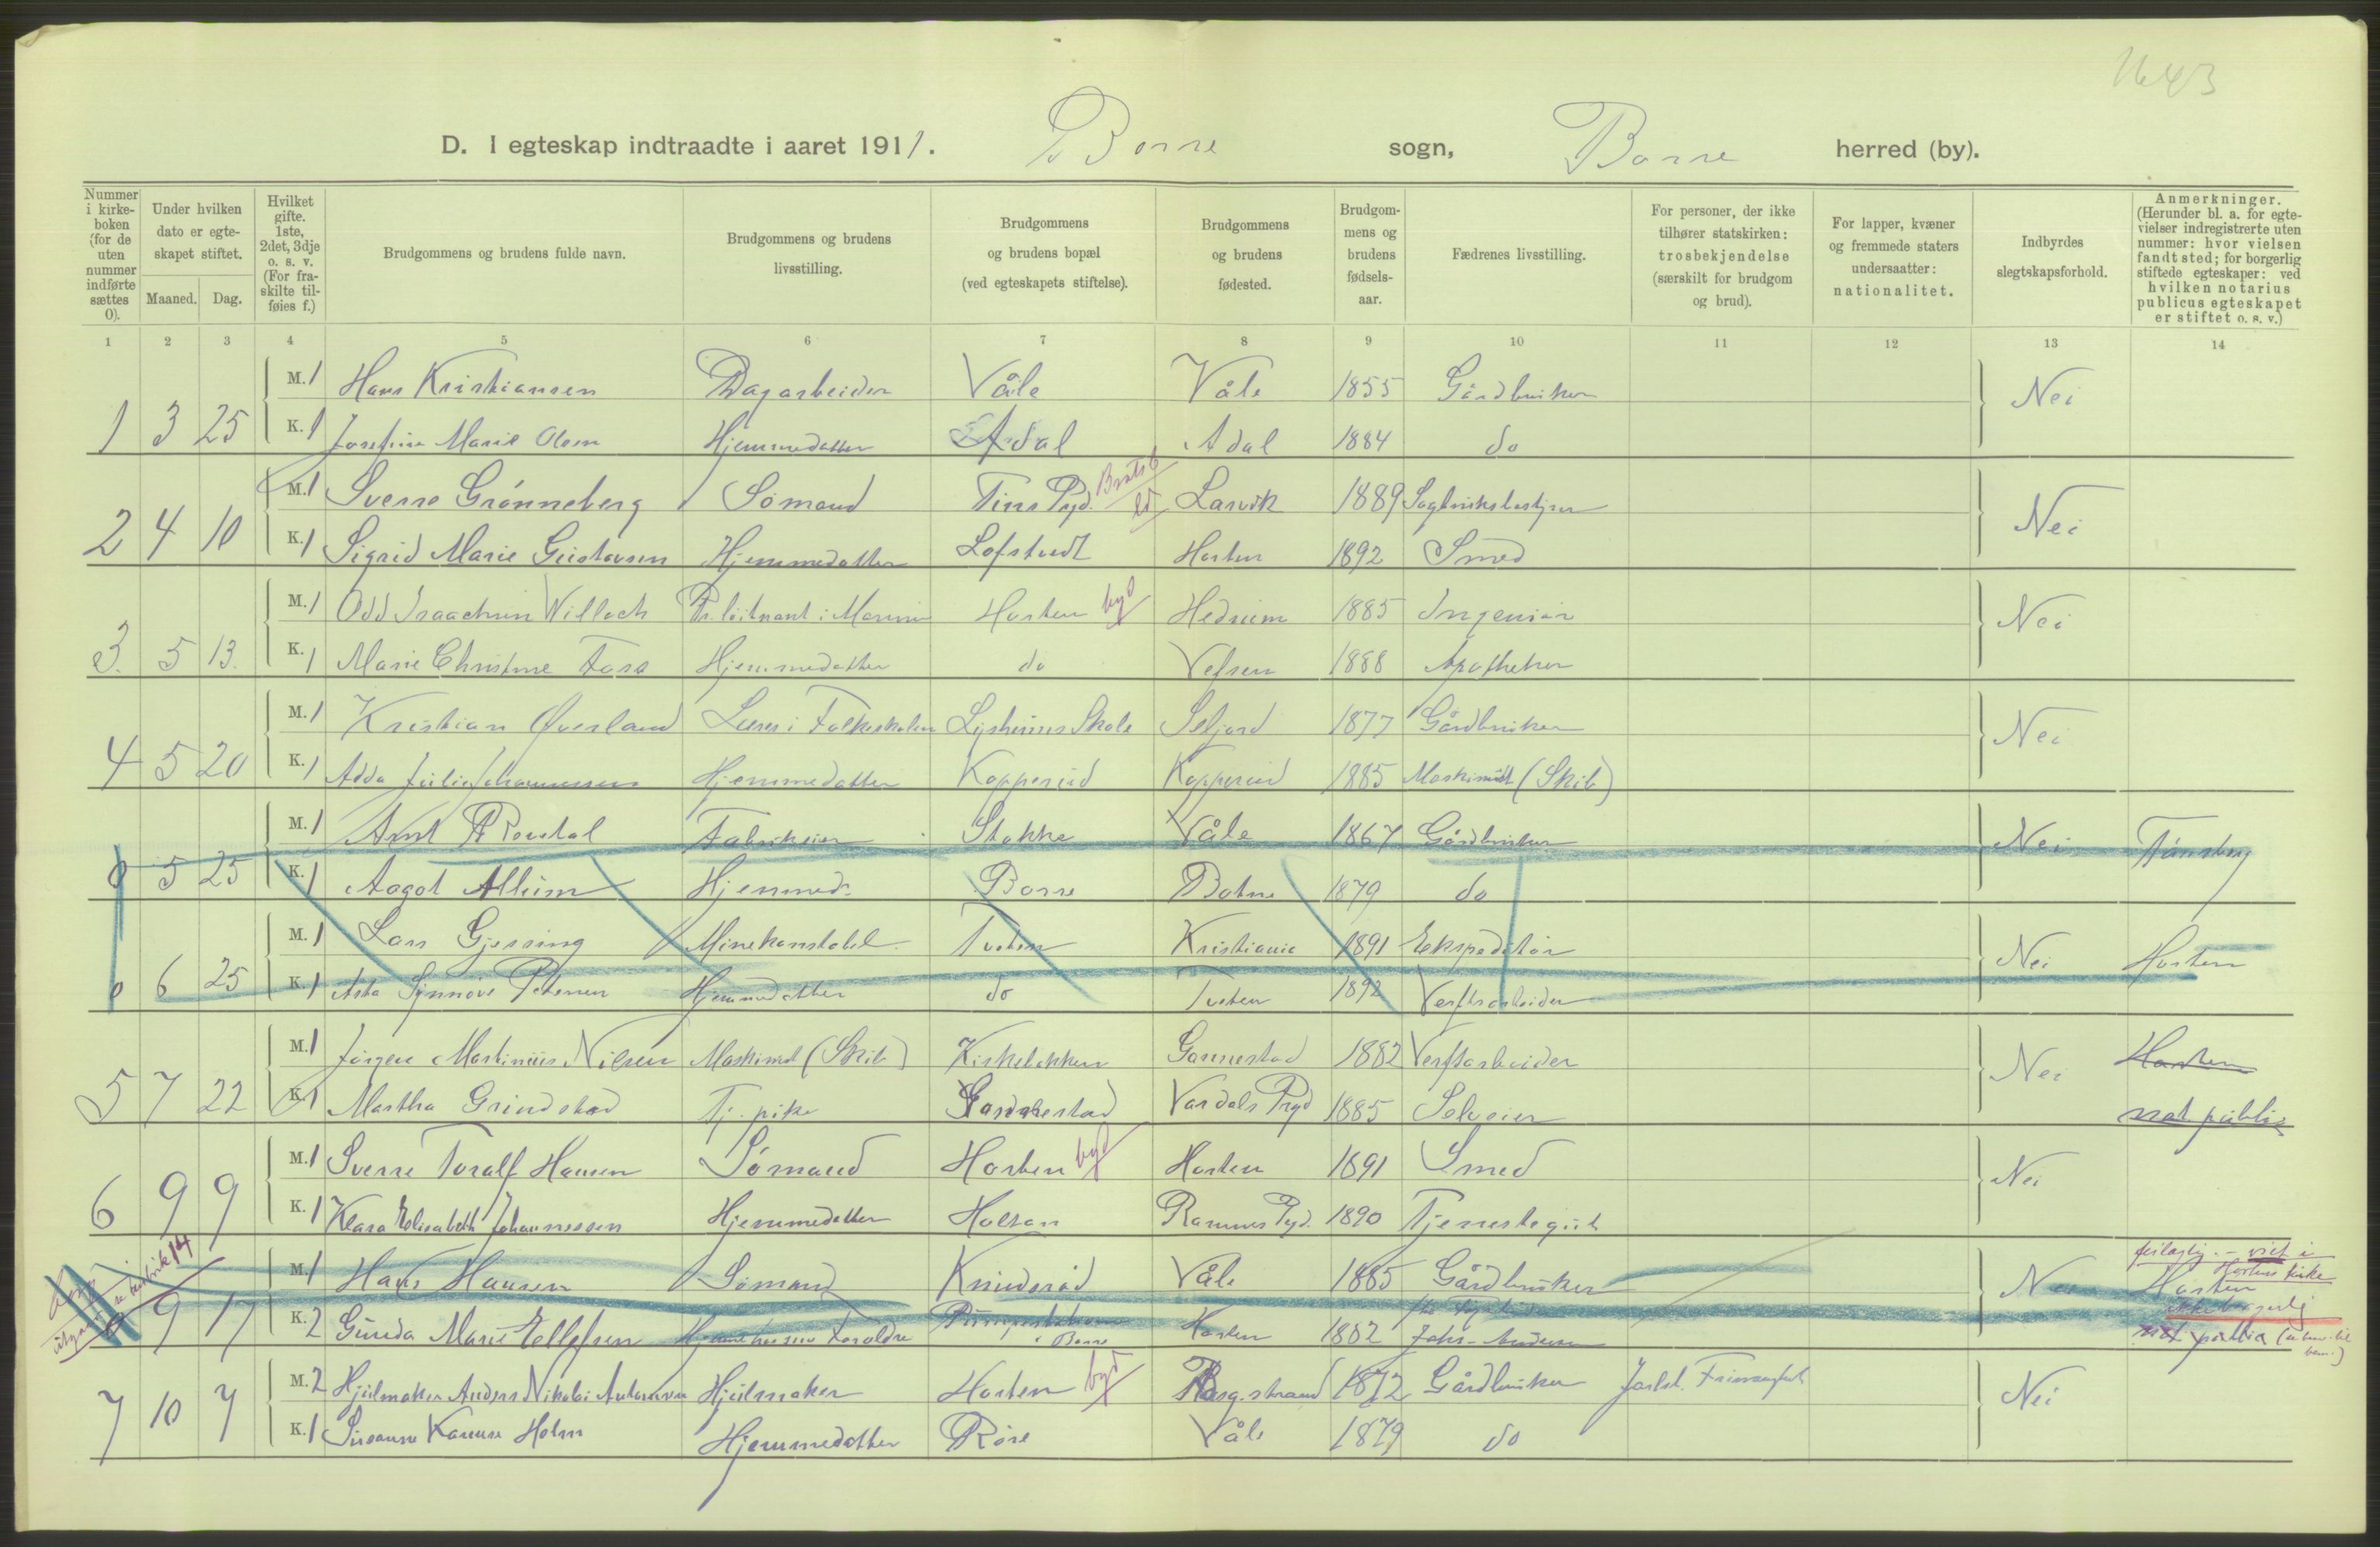 1643
D. I egteskap indtraadte i aaret 1911. Borre sogn, Borre herred (by).
Nummer i kirkeboken (for de uten nummer indførte sættes 0).
Under hvilken dato er egteskapet stiftet.
Maaned. Dag.
Hvilket gifte. 1ste, 2det, 3dje o. s. v. (For fraskilte tilføies f.)
Brudgommens og brudens fulde navn.
Brudgommens og brudens livsstilling.
Brudgommens og brudens bopæl (ved egteskapets stiftelse).
Brudgommens og brudens fødested.
Brudgommens og brudens fødselsaar.
Fædrenes livsstilling.
For personer, der ikke tilhører statskirken: trosbekjendelse (særskilt for brudgom og brud).
For lapper, kvæner og fremmede staters undersaatter: nationalitet.
Indbyrdes slegtskapsforhold.
Anmerkninger. (Herunder bl. a. for egtevielser indregistrerte uten nummer: hvor vielsen fandt sted; for borgerlig stiftede egteskaper: ved hvilken notarius publicus egteskapet er stiftet o. s. v.)
1 2 3 4 5 6 7 8 9 10 11 12 13 14
M. 1 Hans Kristiansen Dagarbeider Våle Våle 1855 Gårdbruker Nei
1 3 25 K. 1 Josefine Marie Olsen Hjemmedatter Adal Adal 1884 do
M. 1 Sverre Grönneberg Sömand Tins Pgd. Larvik 1889 Sagbruksbestyrer Nei
2 4 10 K. 1 Sigrid Marie Gustavsen Hjemmedatter Lofstedt Horten 1892 Smed
M. 1 Odd Isaachsen Willoch Pr. löitnant i Marinen Horten byd Hedrum 1885 Ingeniör Nei
3. 5 13. K. 1 Marie Christine Fors Hjemmedatter do Vefsen 1888 Apotheker
M. 1 Kristian Överland Lærer i Folkeskolen Lysheims Skole Seljord 1877 Gårdbruker Nei
4 5 20 K. 1 Adda Julie Johannessen Hjemmedatter Kopperud Kopperud 1885 Maskinist (Skib)
M. 1 Arnt Rørdal Fabrikeier Stokke Våle 1867 Gårdbruker Nei Tönsberg
0 5 25 K. 1 Aagot Allum Hjemmed. Borre Botne 1879 do
M. 1 Lars Gjessing Minekonstabel Tveten Kristiania 1891 Ekspeditör Nei Horten
0 6 25 K. 1 Asta Synnöve Petersen Hjemmedatter do Tveten 1892 Verftsarbeider
M. 1 Jörgen Martinius Nilsen Maskinist (Skib) Kirkebakken Gannestad 1882 Verftsarbeider Nei Horten
5 7 22 K. 1 Martha Grindstad Tj. pike Gannestad Vardals Pgd 1885 Selveier not public
M. 1 Sverre Toralf Hansen Sömand Horten byd Horten 1891 Smed Nei
6 9 9 K. 1 Klara Elisabeth Johannessen Hjemmedatter Holtan Ramnes Pgd. 1890 Tjenestegut
M. 1 Hans Hansen Sömand Knudsröd Våle 1885 Gårdbruker Nei feilagtig. - viet i Hortens kirke
Horten ikke borgerlig
0 9 17 K. 2 Gunda Marie Ellefsen Hjemme hos sine Foreldre i Borre Horten 1882 Johs. Andersen not public
M. 2 Hjulmaker Anders Nikolai Antonsen Hjulmaker Horten byd Aasg.strand 1872 Gårdbruker Jarlsb. Frimenighet Nei
7 10 7 K. 1 Susanne Karense Holm Hjemmedatter Röre Våle 1879 do